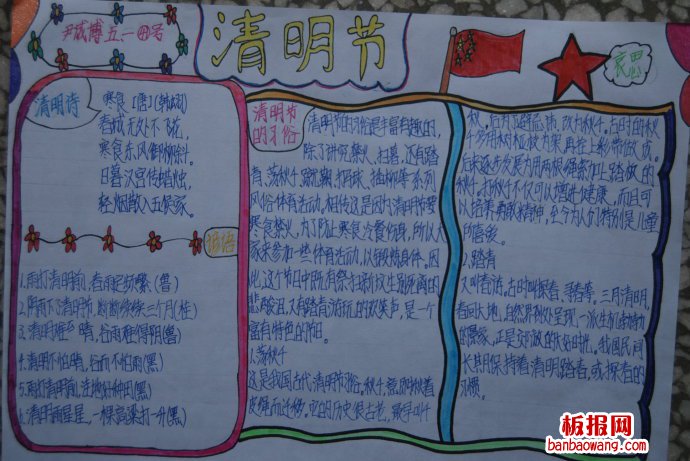 清明节
哀思
清明诗
寒食 [唐]
春城无处不飞花,
寒食东风御柳斜。
日暮汉宫传蜡烛,
轻烟散入五侯家。
谚语
1.雨打清明前,春雨定频繁(鲁)
2.阴雨下了清明节,断断续续三个月(桂)
3.清明难得晴,谷雨难得阴(鲁)
4.清明不怕晴,谷雨不怕雨(黑)
5.雨打清明前,洼地好种田(黑)
6.清明雨星星,一棵高粱打一升(黑)
清明节
的习俗
清明节的习俗是丰富有趣的,
除了讲究禁火、扫墓,还有踏
青、荡秋千、蹴鞠、打马球、插柳等一系列
风俗体育活动。相传这是因为清明节要
寒食禁火,为了防止寒食冷餐伤身,所以大
家来参加一些体育活动,以锻炼身体。因
此,这个节日中既有祭扫新坟生别死离的
悲酸泪,又有踏青游玩的欢笑声,是一个
富有特色的节日。
1.荡秋千
这是我国古代清明节习俗。秋千,意即揪着
皮绳而迁移。它的历史很古老,最早叫千
秋,后为了避忌讳,改为秋千。古时的秋
千多用树桠枝为架,再拴上彩带做成。
后来逐步发展为用两根绳索加上踏板的
秋千。打秋千不仅可以增进健康,而且可
以培养勇敢精神,至今为人们特别是儿童
所喜爱。
2.踏青
又叫春游。古时叫探春、寻春等。三月清明,
春回大地,自然界到处呈现一派生机勃勃
的景象,正是郊游的大好时机。我国民间
长期保持着清明踏青或探春的
习惯。
板报网
banbaowang.com